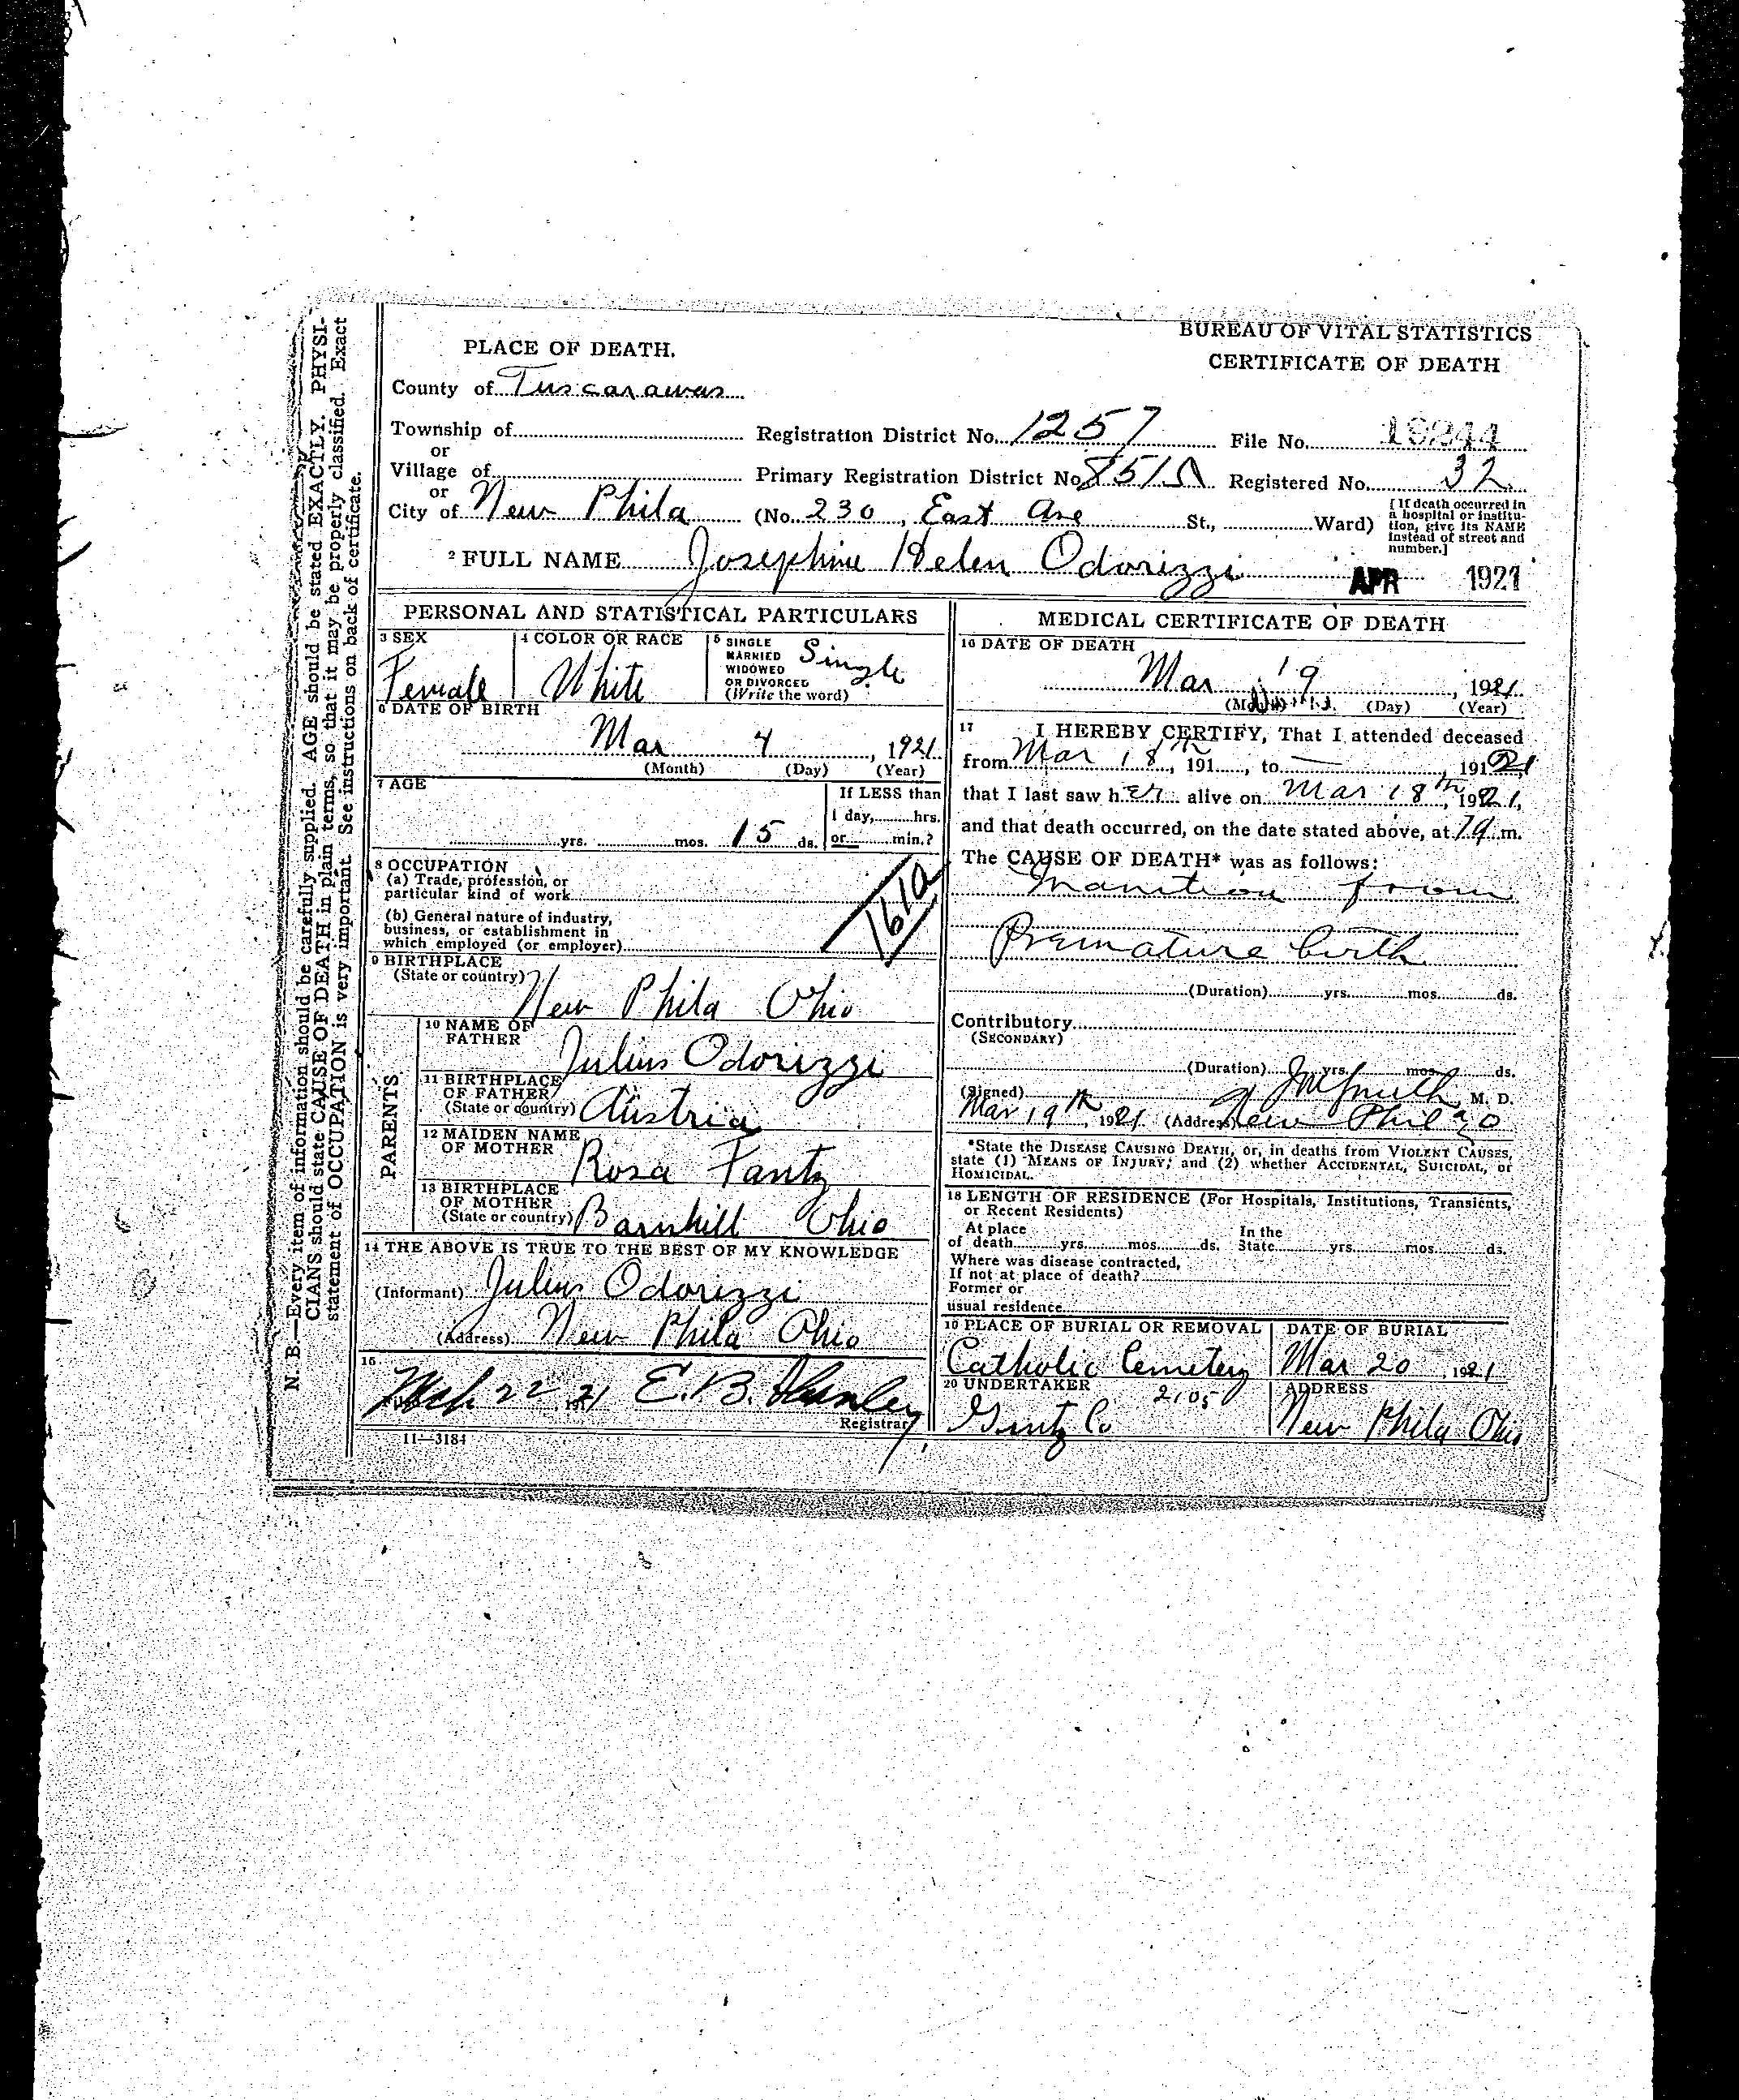 BUREAU OF VITAL STATISTICS
CERTIFICATE OF DEATH
PLACE OF DEATH.
County of Tuscarawas
Township of
or
Village of
or
City of New Phila (No. 230, East Ave St., Ward)
Registration District No. 1257
File No.
Primary Registration District No.
Registered No. 32
[If death occurred in
a hospital or institu-
tion, give its NAME
instead of street and
number.]
2 FULL NAME Josephine Helen Odorizzi
APR 1921
PERSONAL AND STATISTICAL PARTICULARS
3 SEX
Female
4 COLOR OR RACE
White
5 SINGLE
MARRIED
WIDOWED
OR DIVORCED
(Write the word)
Single
6 DATE OF BIRTH
Mar 4, 1921
(Month) (Day) (Year)
7 AGE
yrs. mos. 15 ds.
If LESS than
1 day, hrs.
or min.?
8 OCCUPATION
(a) Trade, profession, or
particular kind of work
(b) General nature of industry,
business, or establishment in
which employed (or employer)
9 BIRTHPLACE
(State or country)
New Phila Ohio
PARENTS
10 NAME OF
FATHER
Julius Odorizzi
11 BIRTHPLACE
OF FATHER
(State or country) Austria
12 MAIDEN NAME
OF MOTHER
Rosa Fantz
13 BIRTHPLACE
OF MOTHER
(State or country) Barnhill Ohio
14 THE ABOVE IS TRUE TO THE BEST OF MY KNOWLEDGE
(Informant) Julius Odorizzi
(Address) New Phila Ohio
15
Mch 22 21 E.B.
Registrar
11—3184
MEDICAL CERTIFICATE OF DEATH
16 DATE OF DEATH
Mar 19, 1921
(Month) (Day) (Year)
17 I HEREBY CERTIFY, That I attended deceased
from Mar 18th, 191 , to — , 1921
that I last saw her alive on Mar 18th, 1921,
and that death occurred, on the date stated above, at m.
The CAUSE OF DEATH* was as follows:
Inanition from
Premature birth
(Duration) yrs. mos. ds.
Contributory
(SECONDARY)
(Duration) yrs. mos. ds.
(Signed) Smith, M. D.
Mar 19th, 1921 (Address) New Phila O
*State the DISEASE CAUSING DEATH, or, in deaths from VIOLENT CAUSES,
state (1) MEANS OF INJURY; and (2) whether ACCIDENTAL, SUICIDAL, or
HOMICIDAL.
18 LENGTH OF RESIDENCE (For Hospitals, Institutions, Transients,
or Recent Residents)
At place
of death yrs. mos. ds.
In the
State yrs. mos. ds.
Where was disease contracted,
If not at place of death?
Former or
usual residence
19 PLACE OF BURIAL OR REMOVAL
Catholic Cemetery
DATE OF BURIAL
Mar 20, 1921
20 UNDERTAKER
2105
Gintz Co
ADDRESS
New Phila Ohio
N. B.—Every item of information should be carefully supplied. AGE should be stated EXACTLY. PHYSI-
CIANS should state CAUSE OF DEATH in plain terms, so that it may be properly classified. Exact
statement of OCCUPATION is very important. See instructions on back of certificate.